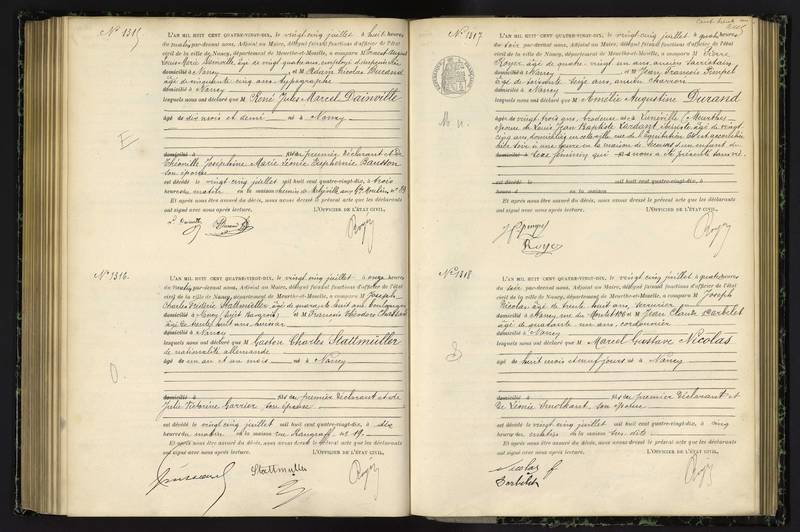 N° 1315
L'AN MIL HUIT CENT QUATRE-VINGT-DIX, le vingt cinq juillet à huit heures
du matin, par-devant nous, Adjoint au Maire, délégué faisant fonctions d'officier de l'état
civil de la ville de Nancy, département de Meurthe-et-Moselle, a comparu M
Louis Marie Dainville, âgé de vingt quatre ans, employé
domicilié à Nancy et M Adam Nicolas Durand
âgé de cinquante cinq ans, typographe
domicilié à Nancy
lesquels nous ont déclaré que M René Jules Marcel Dainville
âgé de dix mois et demi né à Nancy
domicilié à fils du premier déclarant et de
Joséphine Marie Léonie Euphémie Bausson
son épouse
est décédé le vingt cinq juillet mil huit cent quatre-vingt-dix, à trois
heures du matin en la maison chemin de
Et après nous être assuré du décès, nous avons dressé le présent acte que les déclarants
ont signé avec nous après lecture. L'OFFICIER DE L'ÉTAT CIVIL,
E
N° 1316
L'AN MIL HUIT CENT QUATRE-VINGT-DIX, le vingt cinq juillet à onze heures
du matin, par-devant nous, Adjoint au Maire, délégué faisant fonctions d'officier de l'état
civil de la ville de Nancy, département de Meurthe-et-Moselle, a comparu M Joseph
Charles Frédéric Stattmüller, âgé de quarante huit ans, boulanger
domicilié à Nancy et M François Théodore
âgé de trente huit ans
domicilié à Nancy
lesquels nous ont déclaré que M Gaston Charles Stattmüller
de nationalité allemande
âgé de un an et un mois né à Nancy
domicilié à fils du premier déclarant et de
Julie Victorine Garrier, son épouse
est décédé le vingt cinq juillet mil huit cent quatre-vingt-dix, à dix
heures du matin en la maison rue Haxo n° 19
Et après nous être assuré du décès, nous avons dressé le présent acte que les déclarants
ont signé avec nous après lecture. L'OFFICIER DE L'ÉTAT CIVIL,
Stattmüller
N° 1317
L'AN MIL HUIT CENT QUATRE-VINGT-DIX, le vingt cinq juillet à quatre heures
du soir, par-devant nous, Adjoint au Maire, délégué faisant fonctions d'officier de l'état
civil de la ville de Nancy, département de Meurthe-et-Moselle, a comparu M Pierre
Royer, âgé de quatre vingt un ans, ancien secrétaire
domicilié à Nancy et M Jean François
âgé de soixante seize ans, ancien charron
domicilié à Nancy
lesquels nous ont déclaré que M Amélie Augustine Durand
âgée de vingt trois ans, brodeuse née à Lunéville (Meurthe)
épouse de Louis Jean Baptiste Lardant, ébéniste, âgé de vingt
cinq ans, domiciliés en cette ville rue de l'Equitation est accouchée
en la maison de secours d'un enfant du
sexe féminin qui nous a été présenté sans vie.
est décédé le mil huit cent quatre-vingt-dix, à
heures d en la maison
Et après nous être assuré du décès, nous avons dressé le présent acte que les déclarants
ont signé avec nous après lecture. L'OFFICIER DE L'ÉTAT CIVIL,
Royer
N° 1318
L'AN MIL HUIT CENT QUATRE-VINGT-DIX, le vingt cinq juillet à quatre heures
du soir, par-devant nous, Adjoint au Maire, délégué faisant fonctions d'officier de l'état
civil de la ville de Nancy, département de Meurthe-et-Moselle, a comparu M Joseph
Nicolas, âgé de trente huit ans, serrurier
domicilié à Nancy, rue du Montet 106 et M Jean Claude Barbelet
âgé de quarante un ans, cordonnier
domicilié à Nancy
lesquels nous ont déclaré que M Marcel Gustave Nicolas
âgé de huit mois et neuf jours né à Nancy
domicilié à fils du premier déclarant et
de Léonie, son épouse
est décédé le vingt cinq juillet mil huit cent quatre-vingt-dix, à cinq
heures du matin en la maison sus dite
Et après nous être assuré du décès, nous avons dressé le présent acte que les déclarants
ont signé avec nous après lecture. L'OFFICIER DE L'ÉTAT CIVIL,
Nicolas
Barbelet